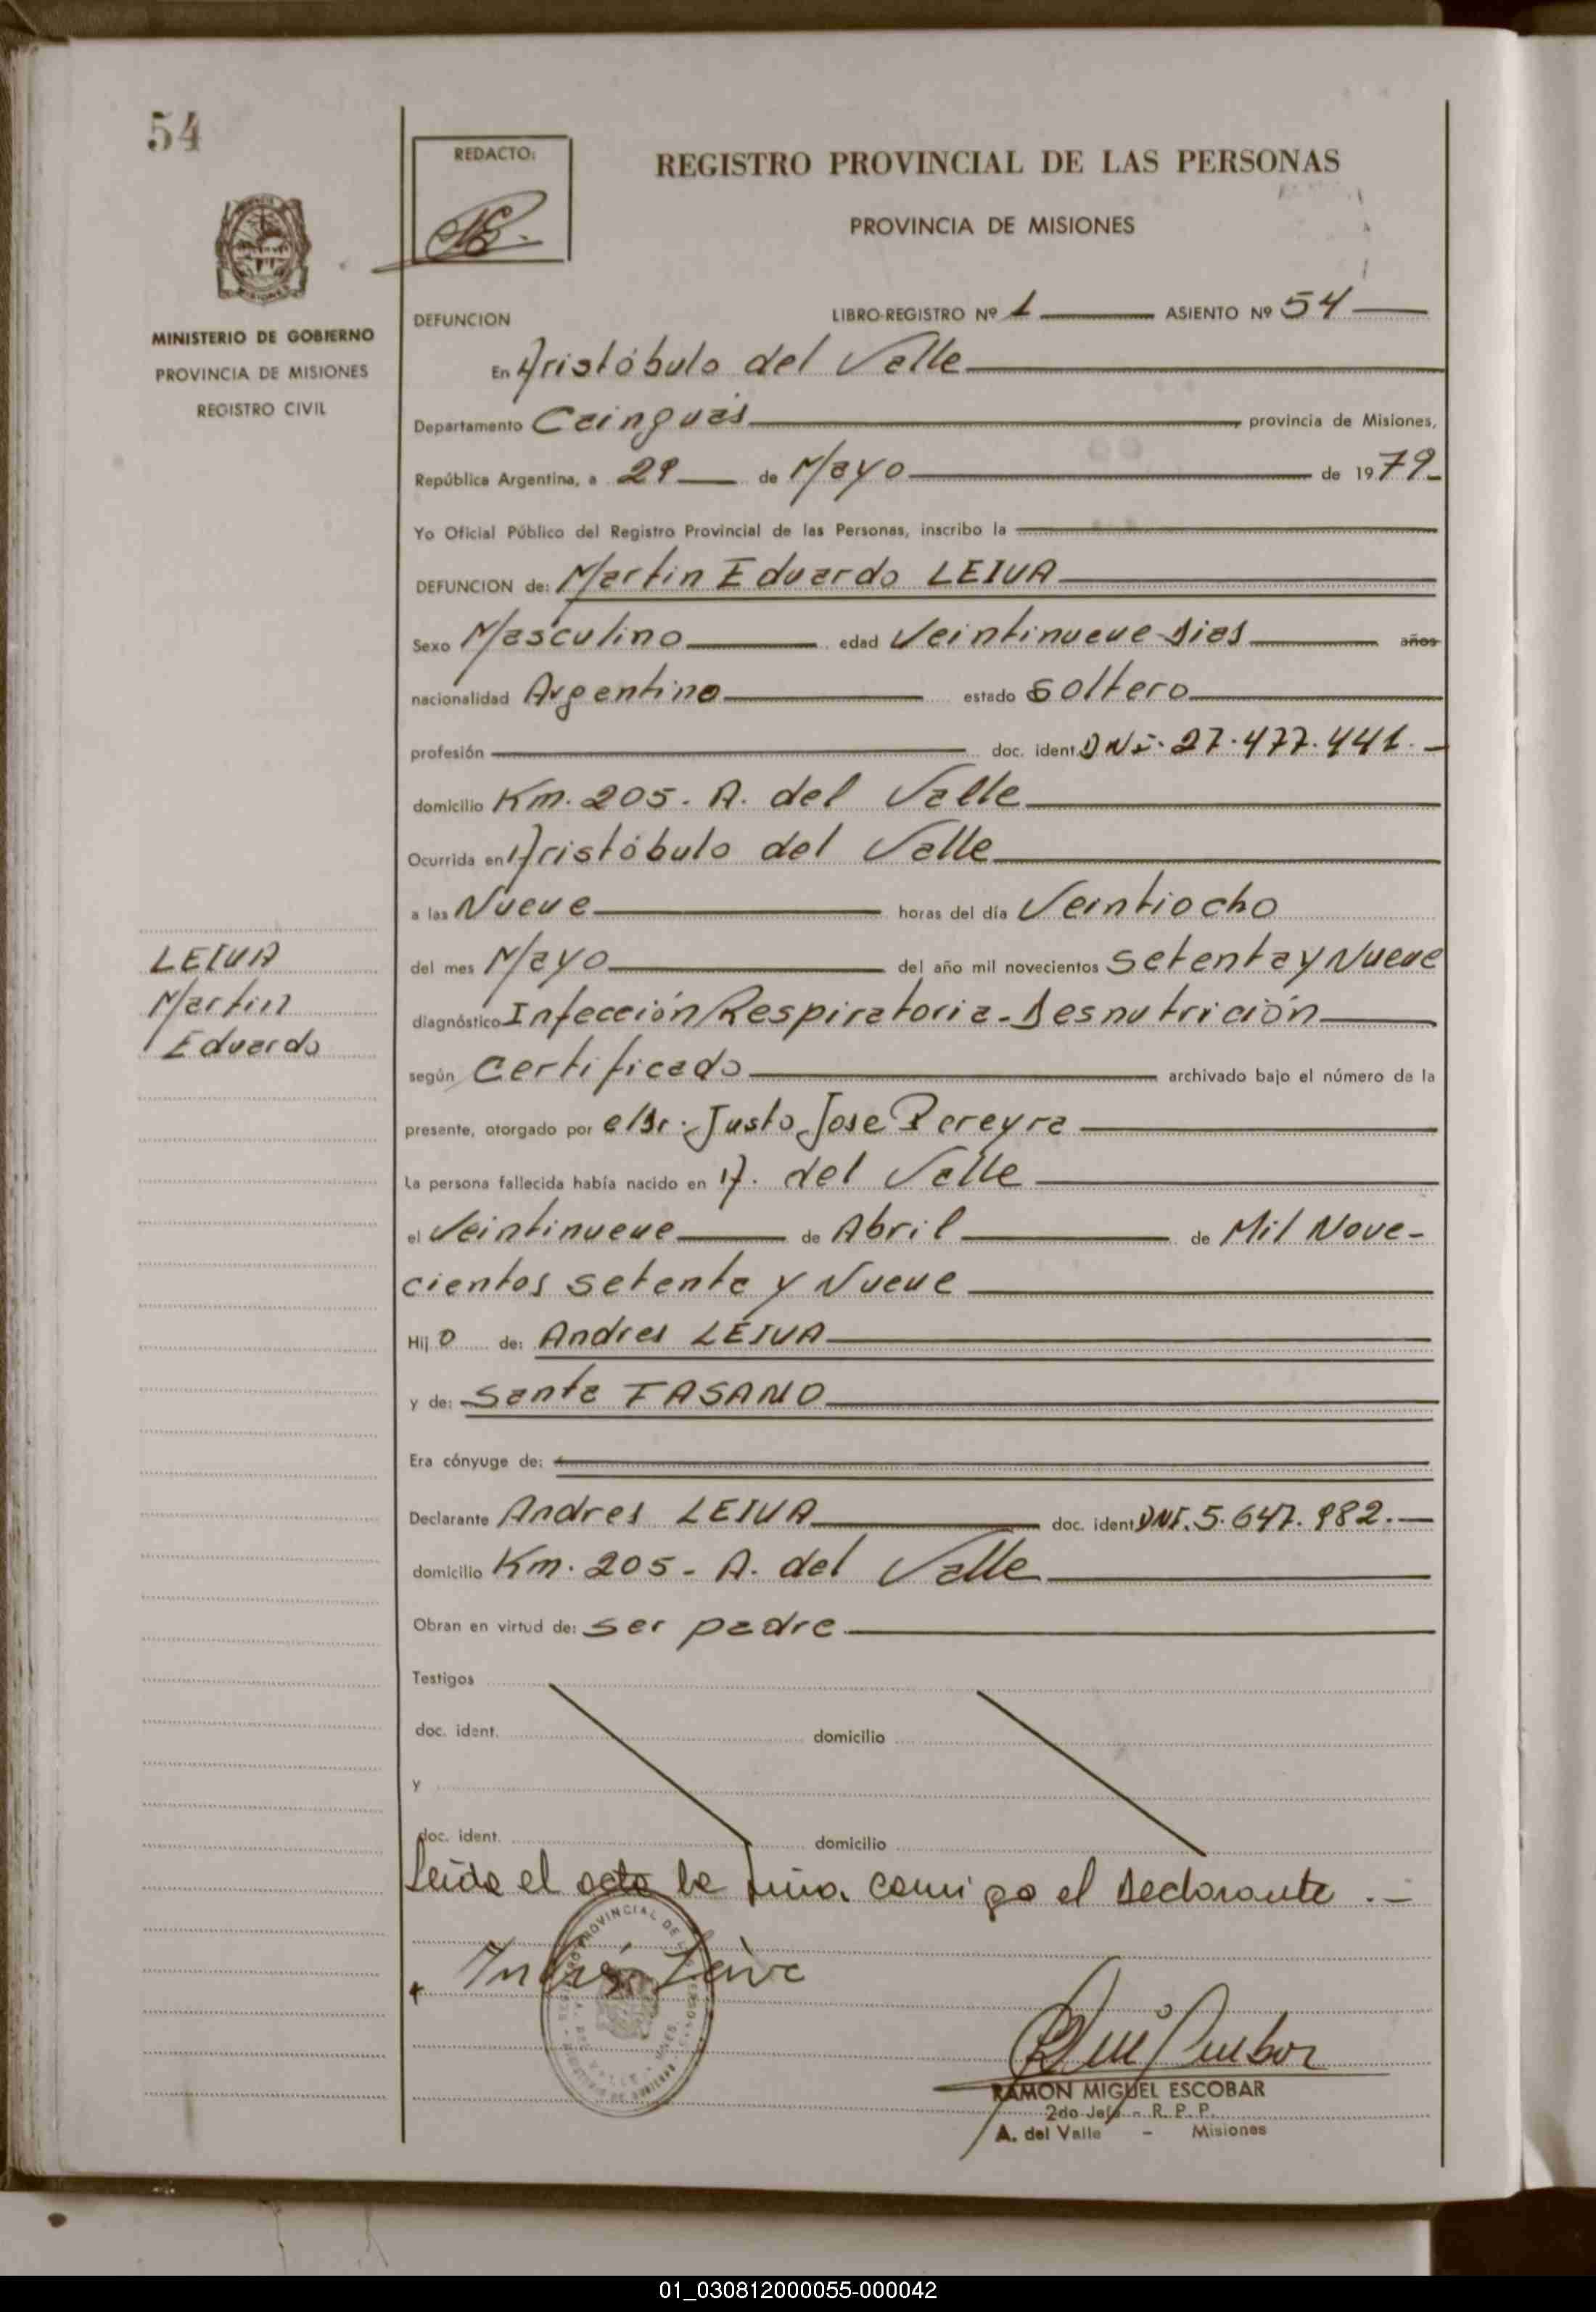 54
REDACTO:
REGISTRO PROVINCIAL DE LAS PERSONAS
PROVINCIA DE MISIONES
MINISTERIO DE GOBIERNO
PROVINCIA DE MISIONES
REGISTRO CIVIL
DEFUNCION LIBRO-REGISTRO Nº 1 ASIENTO Nº 54
En Aristóbulo del Valle
Departamento Cainguás provincia de Misiones,
República Argentina, a 29 de Mayo de 1979
Yo Oficial Público del Registro Provincial de las Personas, inscribo la
DEFUNCION de: Martin Eduardo LEIVA
Sexo Masculino edad Veintinueve Dias años
nacionalidad Argentino estado Soltero
profesión doc. ident. DNI. 27.477.441.
domicilio Km. 205. A. del Valle
Ocurrida en Aristóbulo del Valle
a las Nueve horas del día Veintiocho
del mes Mayo del año mil novecientos Setenta y Nueve
diagnóstico Infección Respiratoria - Desnutrición
según Certificado archivado bajo el número de la
presente, otorgado por el Dr. Justo Jose Pereyra
La persona fallecida había nacido en A. del Valle
el Veintinueve de Abril de Mil Nove-
cientos Setenta y Nueve
Hijo de: Andres LEIVA
y de: Santa FASANO
Era cónyuge de:
Declarante Andres LEIVA doc. ident. DNI. 5.647.982.
domicilio Km. 205 - A. del Valle
Obran en virtud de: Ser padre
Testigos
doc. ident. domicilio
y
doc. ident. domicilio
Leida el acta la firma conmigo el Declarante .-
Andrés Leiva
RAMON MIGUEL ESCOBAR
2do Jefe - R. P. P.
A. del Valle - Misiones
LEIVA
Martin
Eduardo
01_030812000055-000042